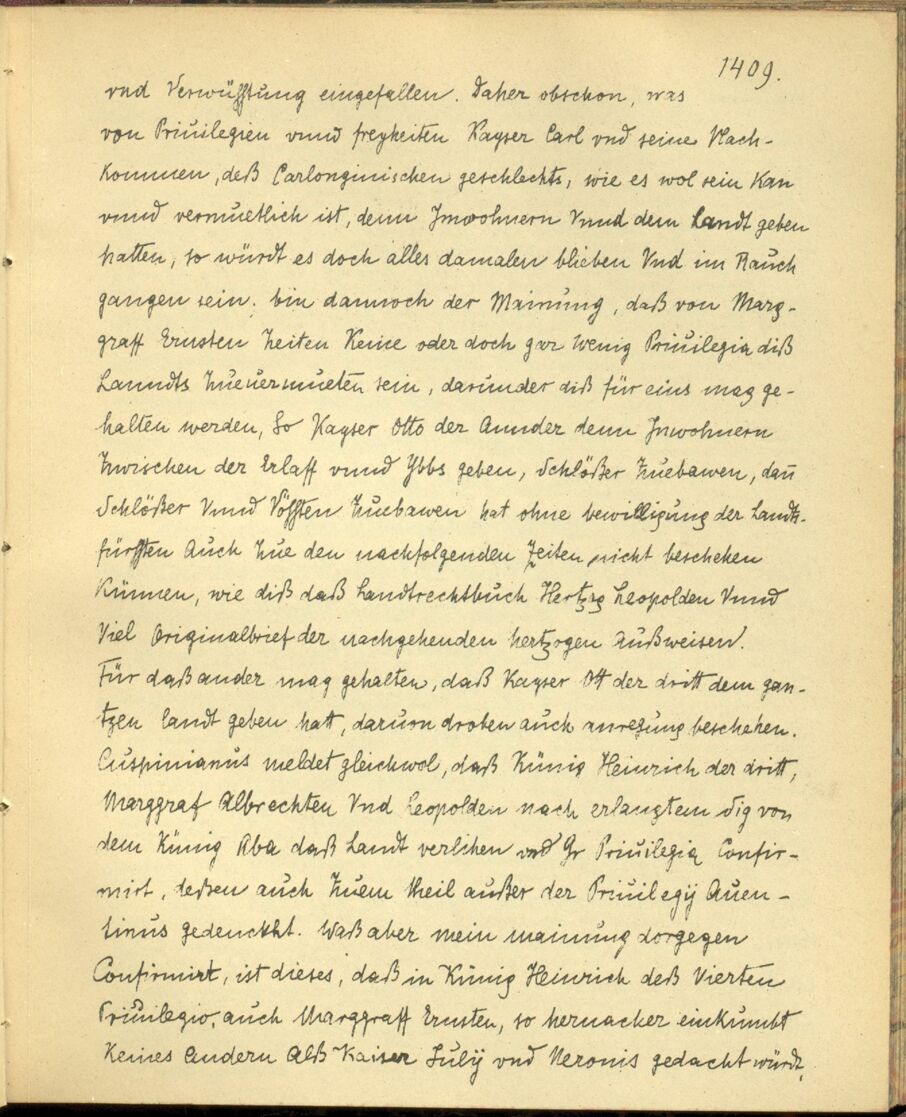 1409.
vnd Verwüsstung eingefallen. Daher obschon, was
von Priuilegien vnnd freyheiten Kayser Carl vnd seine Nach-
kommen, deß Carlonginischen geschlechts, wie es wol sein Kan
vnnd vermuetlich ist, denn Jnwohnern Vnnd dem Landt geben
hatten, so würdt es doch alles damalen blieben Vnd im Rauch
gangen sein. bin dannoch der Mainung, daß von Marg-
graff Ernsten Zeiten Keine oder doch gar wenig Priuilegia diß
Lanndts Zueuermueten sein, darunder diß für eins mag ge-
halten werden, So Kayser Otto der Annder denn Jnwohnern
Zwischen der Erlaff vnnd Ybbs geben, Schlößer Zuebawen, dan̄
Schlößer Vnnd Vössten Zuebawen hat ohne bewilligung der Landts-
fürssten Auch Zue den nachfolgenden Zeiten nicht beschehen
Künnen, wie diß daß Landtrechtsbuch Hertzog Leopolden Vnnd
Viel Originalbrief der nachgehenden hertzogen Außweisen.
Für daß ander mag gehalten, daß Kayser Ott der dritt dem gan-
tzen landt geben hatt, daruon droben auch anregung beschehen.
Cuspinianus meldet gleichwol, daß Künig Heinrich der dritt,
Marggraf Albrechten Vnd Leopolden nach erlangtem Sig von
dem Künig Aba daß Landt verlihen vnd Jr Priuilegia Confir-
mirt, deßen auch Zuem theil außer der Priuilegij Auen-
tinus gedenckht. Waß aber mein mainung dorgegen
Confirmirt, ist dieses, daß in Künig Heinrich deß Vierten
Priuilegio, auch Marggraff Ernsten, so hernacker einkumbt
Keines Andern Alß Kaiser Julij vnd Neronis gedacht würdt,